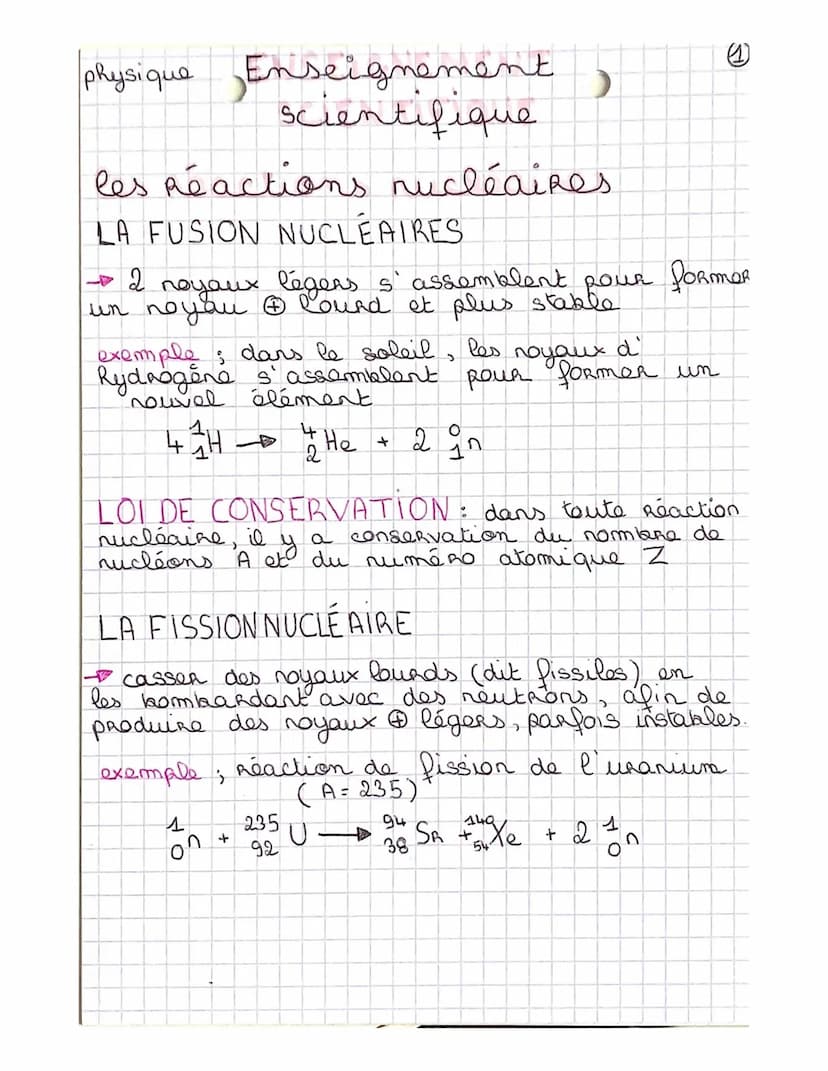 ①
physique Enseignement
scientifique
les réactions nucléaires
LA FUSION NUCLÉAIRES
→ 2 noyaux légers s'assemblent pour former
un noyau ⊕ lourd et plus stable
exemple ; dans le soleil, les noyaux d'
Hydrogène s'assemblent pour former un
nouvel élément
4 ¹₁H → ⁴₂He + 2 ⁰₁n
LOI DE CONSERVATION : dans toute réaction
nucléaire, il y a conservation du nombre de
nucléons A et du numéro atomique Z
LA FISSION NUCLÉAIRE
→ casser des noyaux lourds (dit fissiles) en
les bombardant avec des neutrons, afin de
produire des noyaux ⊕ légers, parfois instables.
exemple ; réaction de fission de l'uranium
(A = 235)
¹₀n + ²³⁵₉₂U → ⁹⁴₃₈Sr + ¹⁴⁰₅₄Xe + 2 ¹₀n